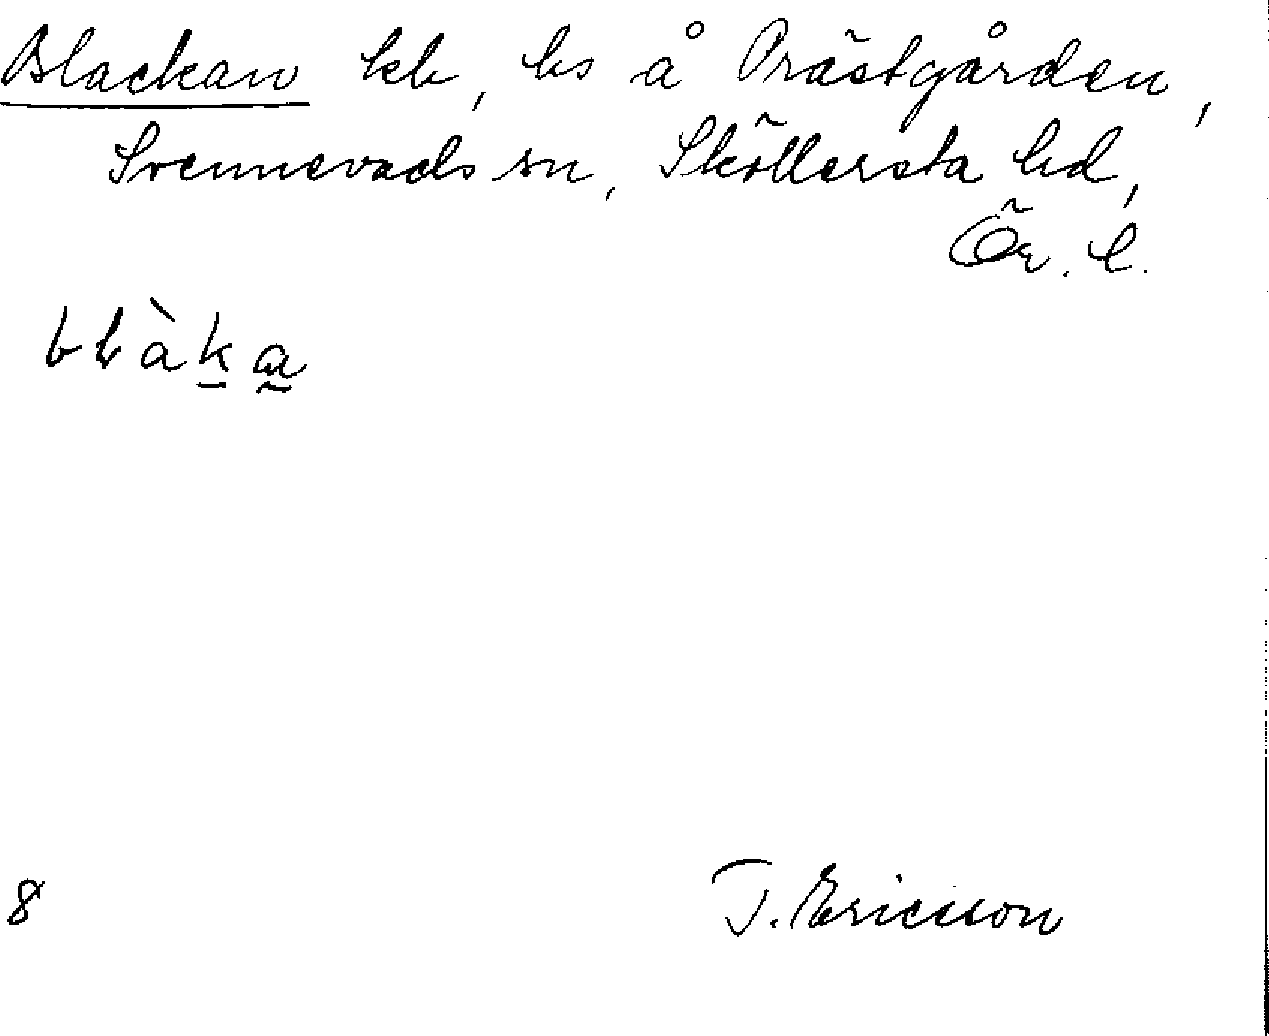 Blackan kb, hs å Prästgården,
Svennevads sn, Sköllersta hd,
Ör. l.
blàka
8
T. Ericsson